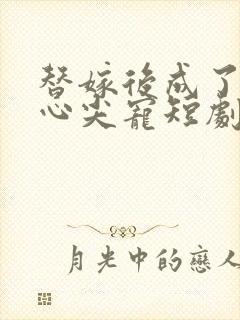 替嫁後成了
心尖寵短劇
月光中的戀人